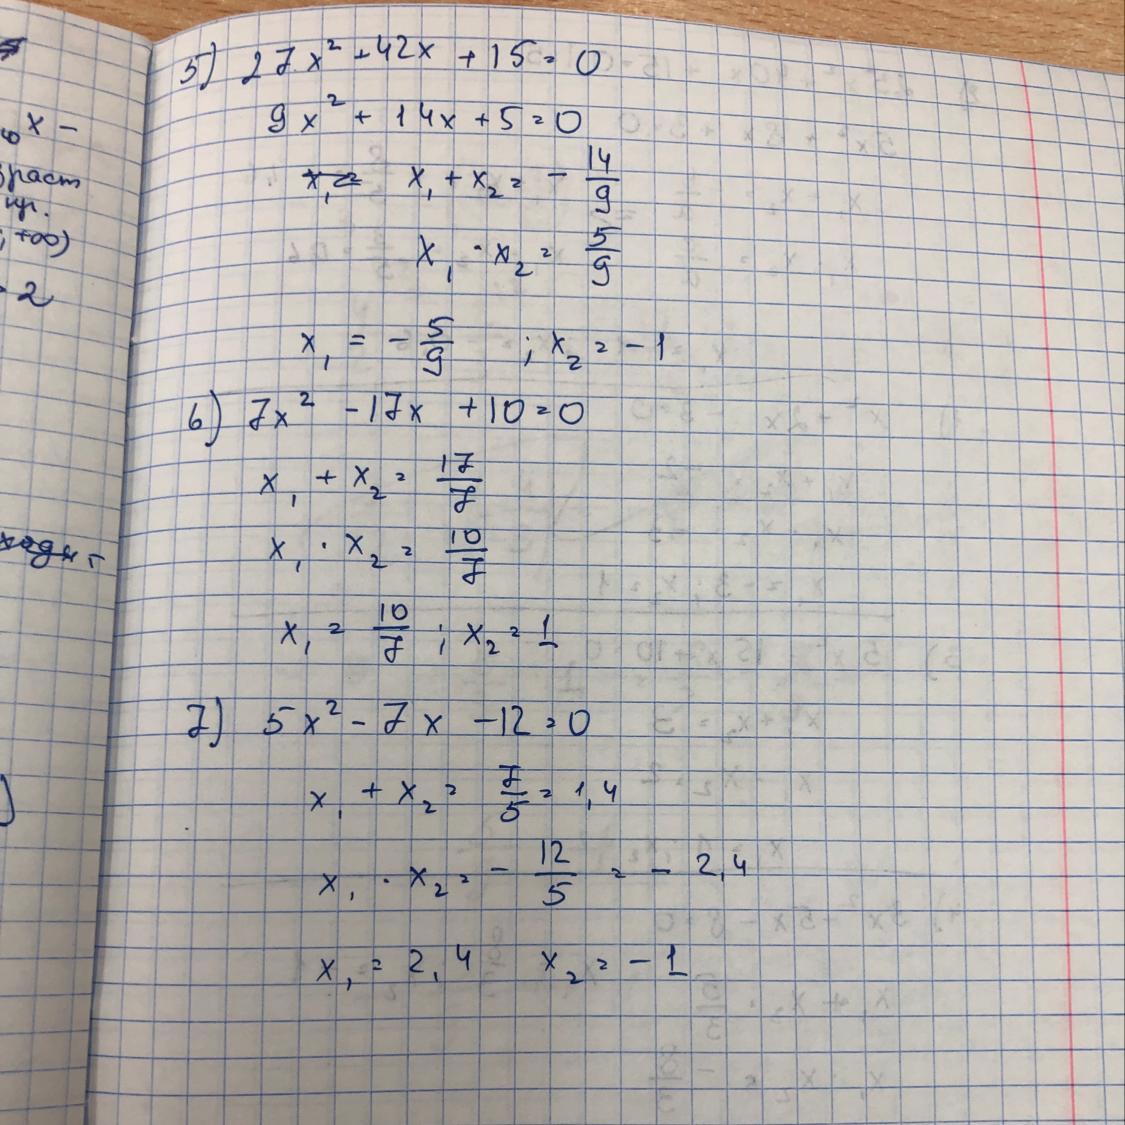 x –
+∞)
2
5) 27x² + 42x + 15 = 0
9x² + 14x + 5 = 0
x₁ + x₂ = - 14/9
x₁ · x₂ = 5/9
x₁ = - 5/9 ; x₂ = - 1
6) 7x² - 17x + 10 = 0
x₁ + x₂ = 17/7
x₁ · x₂ = 10/7
x₁ = 10/7 ; x₂ = 1
7) 5x² - 7x - 12 = 0
x₁ + x₂ = 7/5 = 1,4
x₁ · x₂ = - 12/5 = - 2,4
x₁ = 2,4 x₂ = - 1